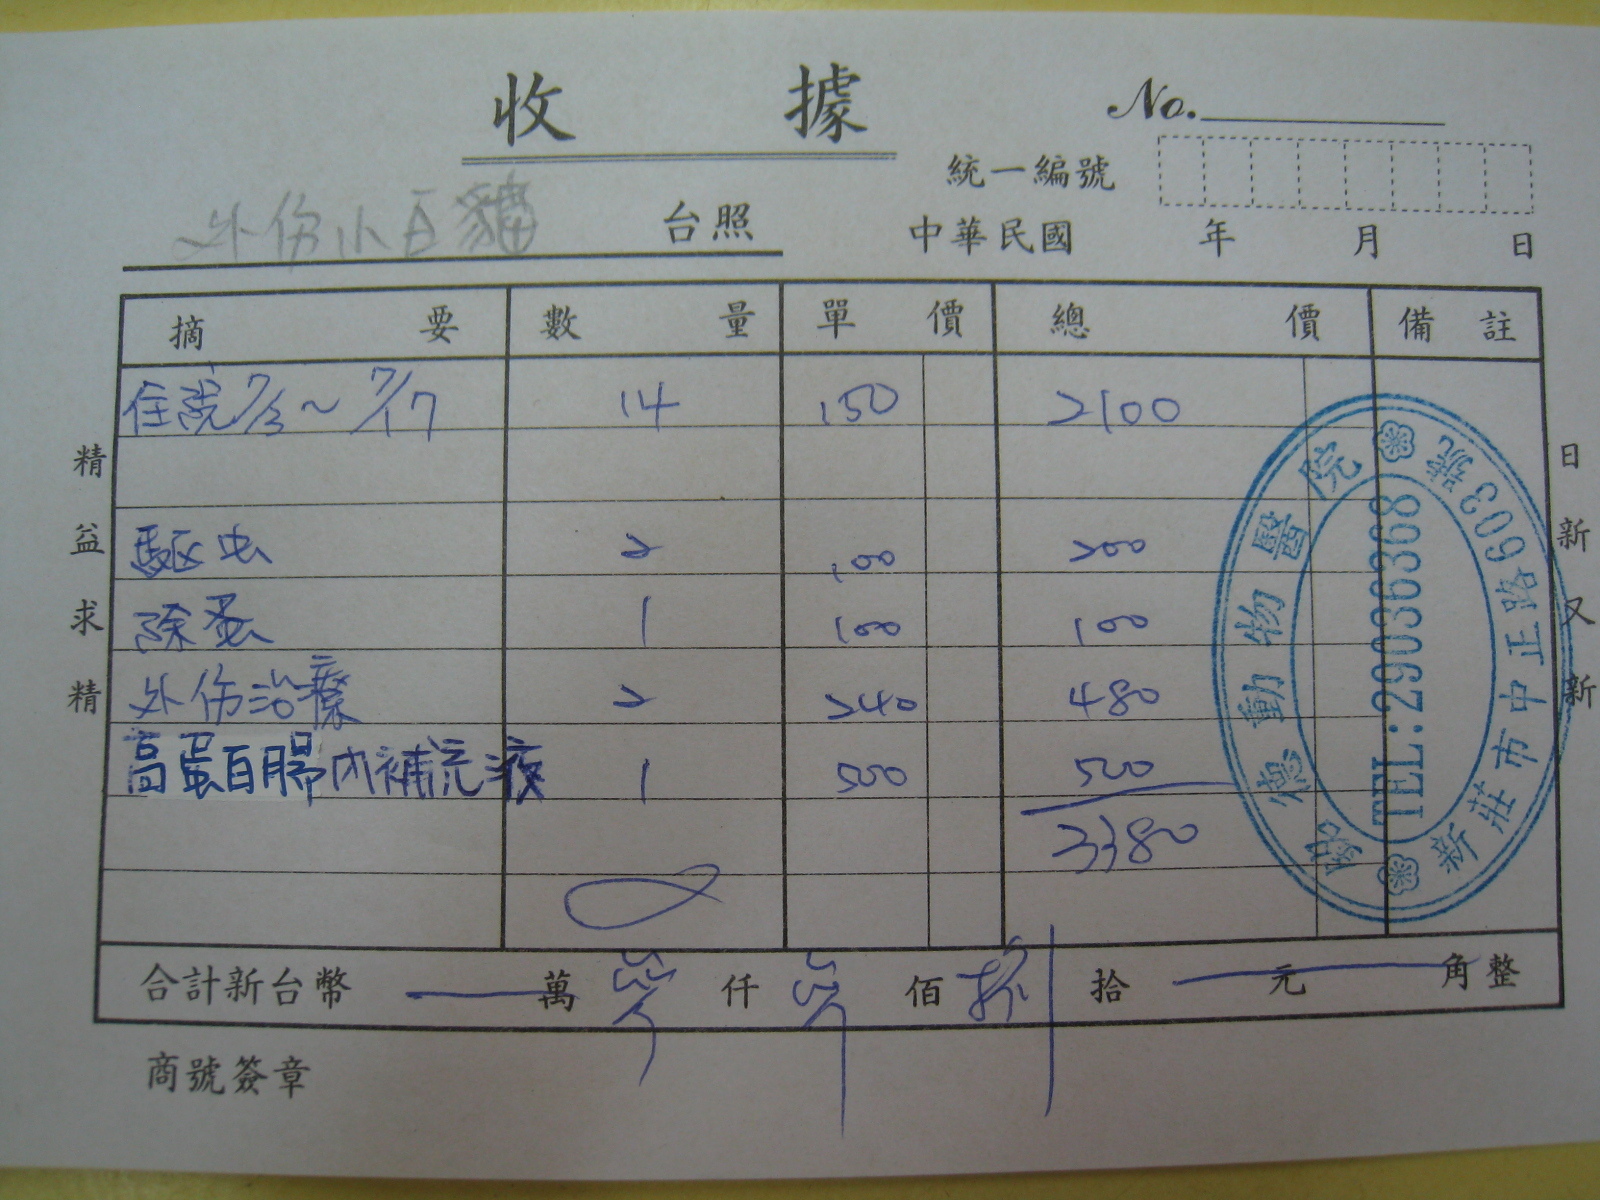 收據
No.
統一編號
外伤小白貓 台照
中華民國 年 月 日
摘要 數量 單價 總價 備註
住院7/3~7/17 14 150 2100
驅虫 2 100 200
除蚤 1 100 100
外伤治療 2 240 480
高蛋白腸內補充液 1 500 500
3380
合計新台幣 萬 叁 仟 叁 佰 捌 拾 元 角整
商號簽章
精益求精
日新又新
德動物醫院
TEL:29036368
新莊市中正路603號